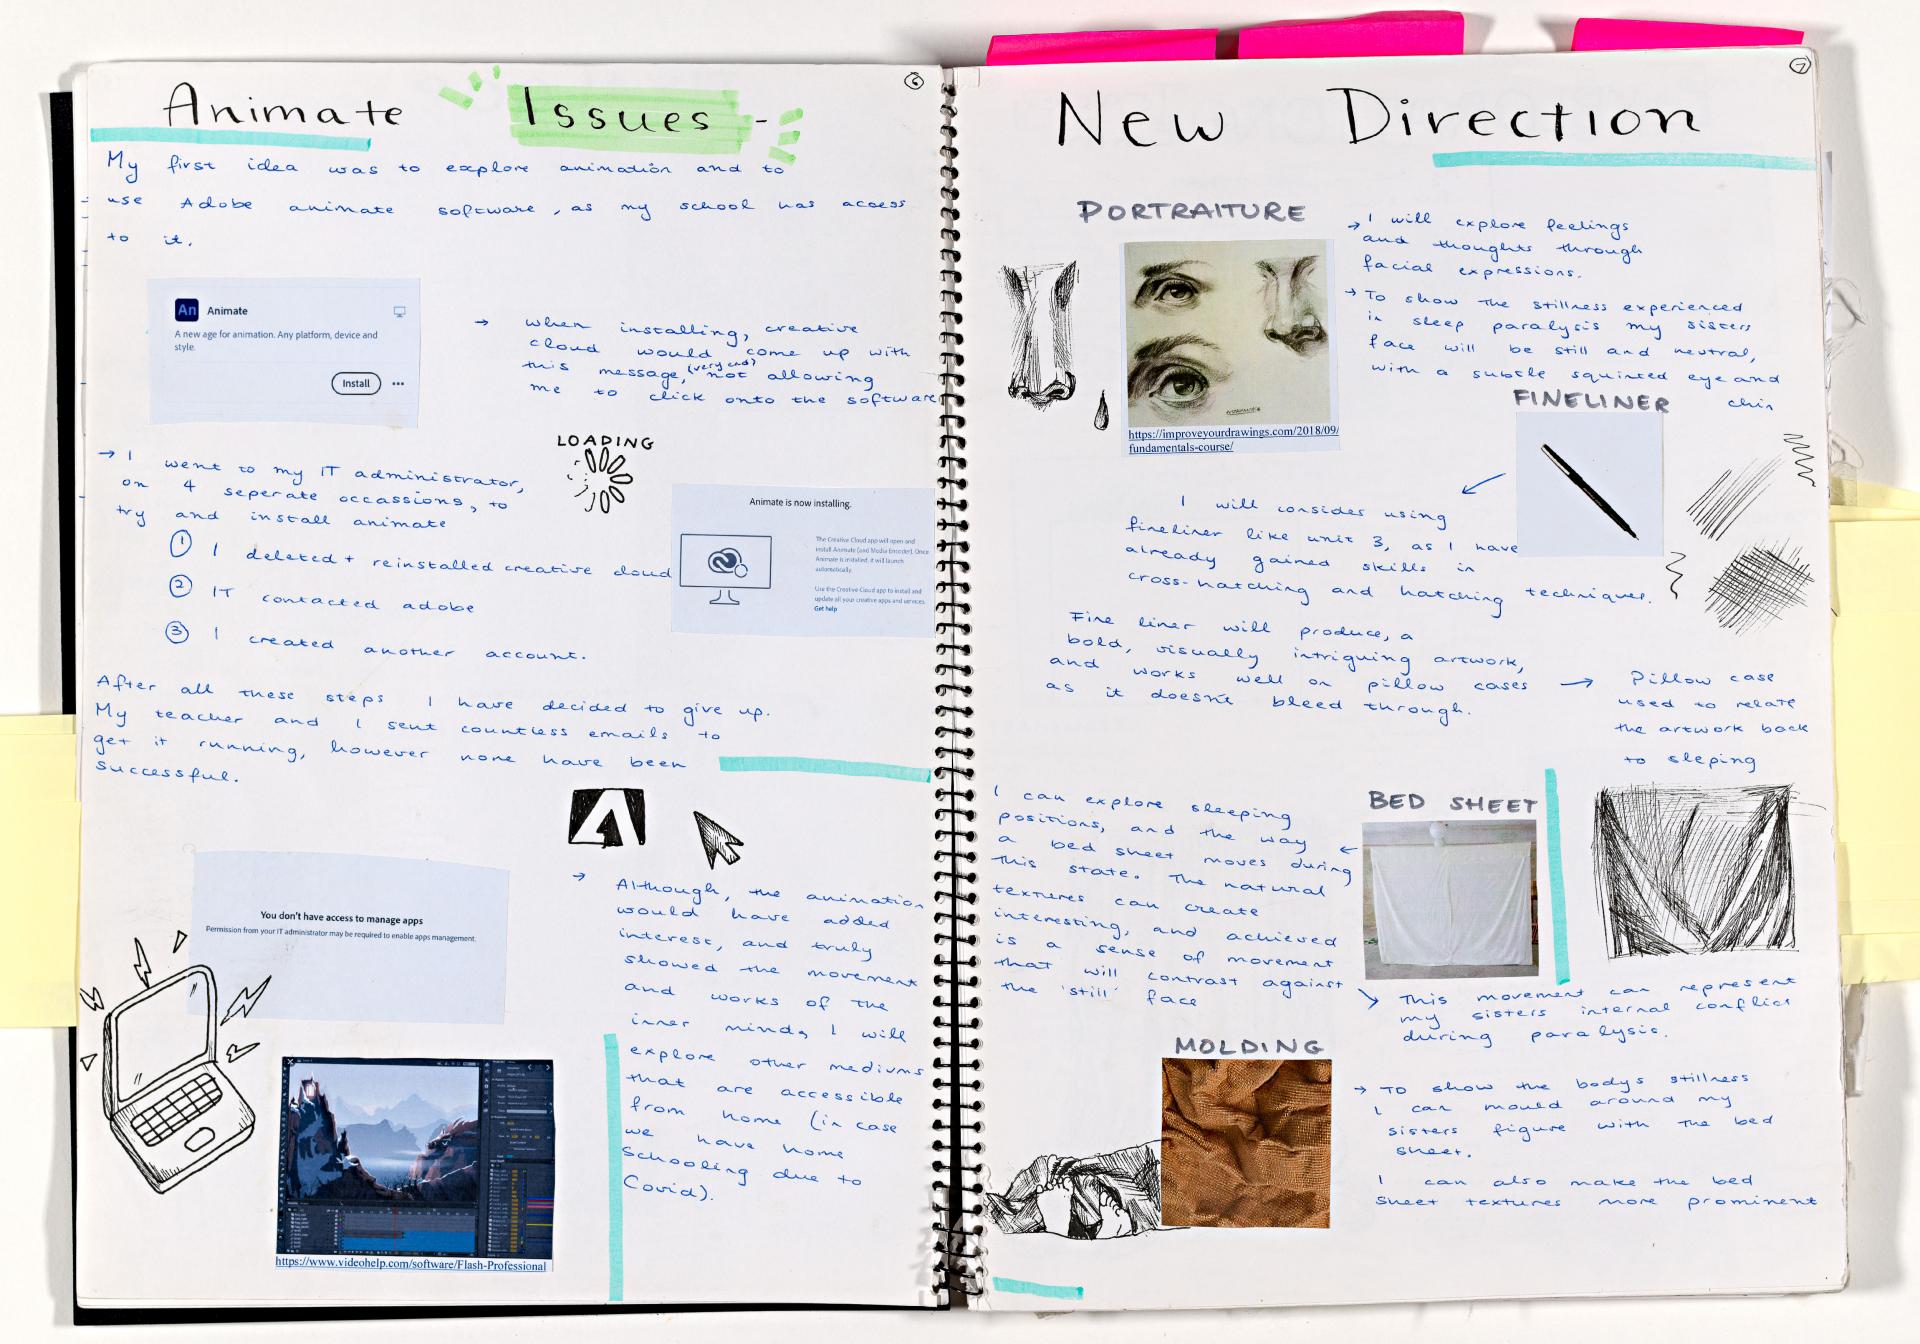 6
Animate Issues -
My first idea was to explore animation and to
use Adobe animate software, as my school has access
to it.
An Animate
A new age for animation. Any platform, device and
style.
Install
→ when installing, creative
cloud would come up with
this message, (very end) not allowing
me to click onto the software
LOADING
→ I went to my IT administrator,
on 4 seperate occassions, to
try and install animate
① I deleted + reinstalled creative cloud
② IT contacted adobe
③ I created another account.
Animate is now installing.
The Creative Cloud app will open and
install Animate (and Media Encoder). Once
Animate is installed, it will launch
automatically.
Use the Creative Cloud app to install and
update all your creative apps and services.
Get help
After all these steps I have decided to give up.
My teacher and I sent countless emails to
get it running, however none have been
successful.
You don't have access to manage apps
Permission from your IT administrator may be required to enable apps management.
→ Although, the animation
would have added
interest, and truly
showed the movement
and works of the
inner minds, I will
explore other mediums
that are accessible
from home (in case
we have home
schooling due to
Covid).
https://www.videohelp.com/software/Flash-Professional
7
New Direction
PORTRAITURE
→ I will explore feelings
and thoughts through
facial expressions.
→ To show the stillness experienced
in sleep paralysis my sisters
face will be still and neutral,
with a subtle squinted eye and
chin
https://improveyourdrawings.com/2018/09/
fundamentals-course/
FINELINER
I will consider using
fineliner like unit 3, as I have
already gained skills in
cross-hatching and hatching techniques.
Fine liner will produce, a
bold, visually intriguing artwork,
and works well on pillow cases
as it doesn't bleed through.
→ Pillow case
used to relate
the artwork back
to sleping
BED SHEET
I can explore sleeping
positions, and the way
a bed sheet moves during
this state. The natural
textures can create
interesting, and achieved
is a sense of movement
that will contrast against
the 'still' face
This movement can represent
my sisters internal conflict
during paralysis.
MOLDING
→ To show the body's stillness
I can mould around my
sisters figure with the bed
sheet.
I can also make the bed
sheet textures more prominent